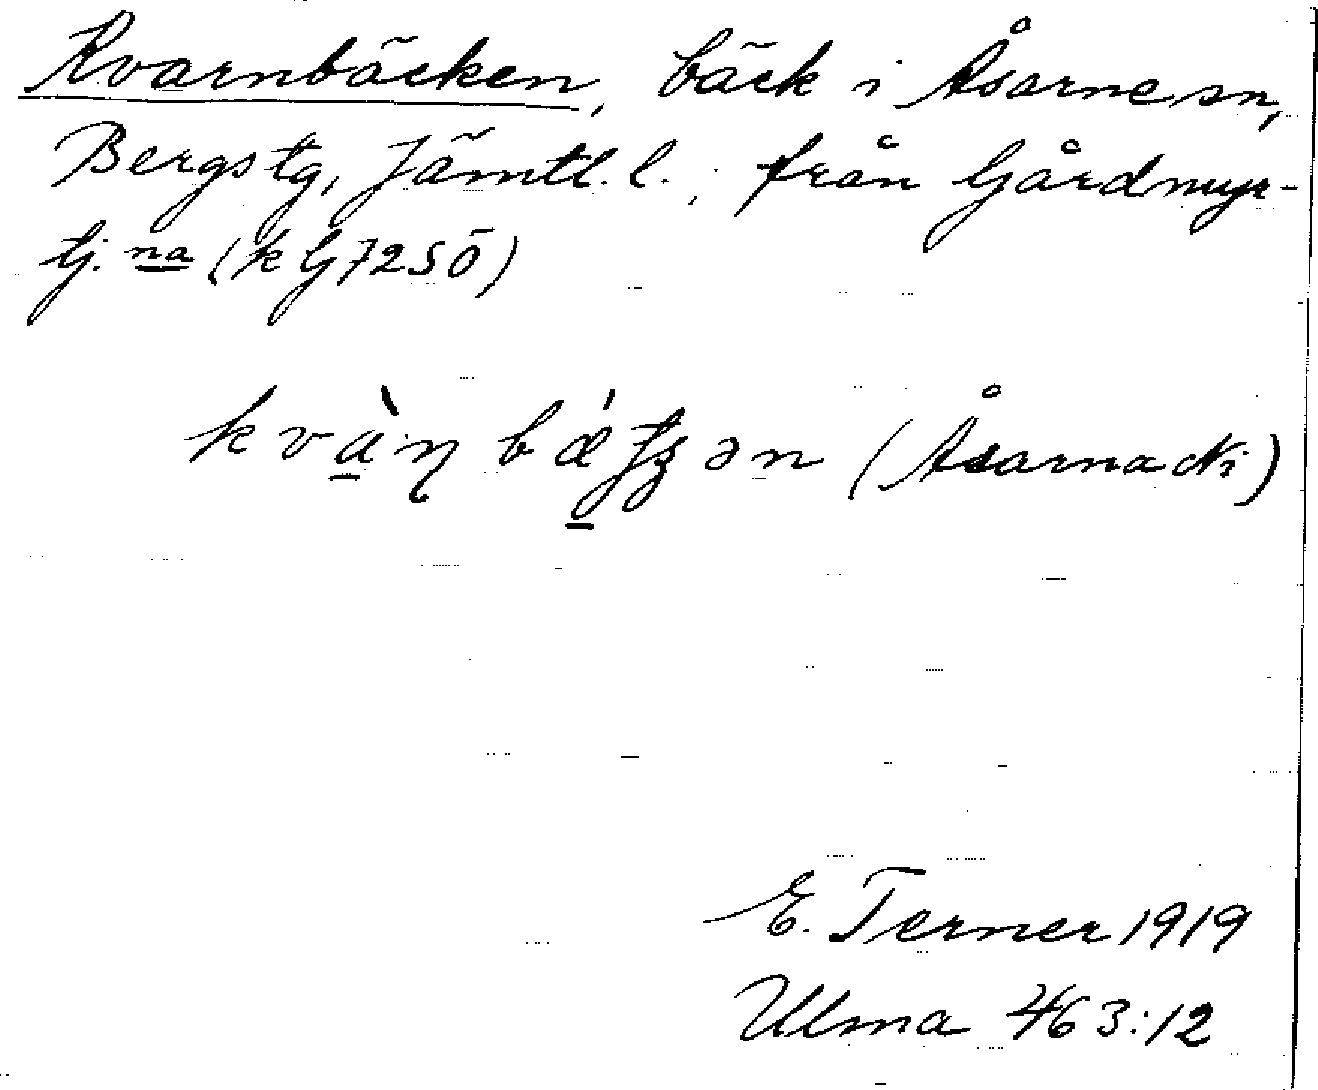 Kvarnbäcken, bäck i Åsarne sn,
Bergs tg, Jämtl. l., från Gårdmyr-
tj. na (k G 72 SÖ)
(Åsarna ck i)
E. Terner 1919
Ulma 463:12